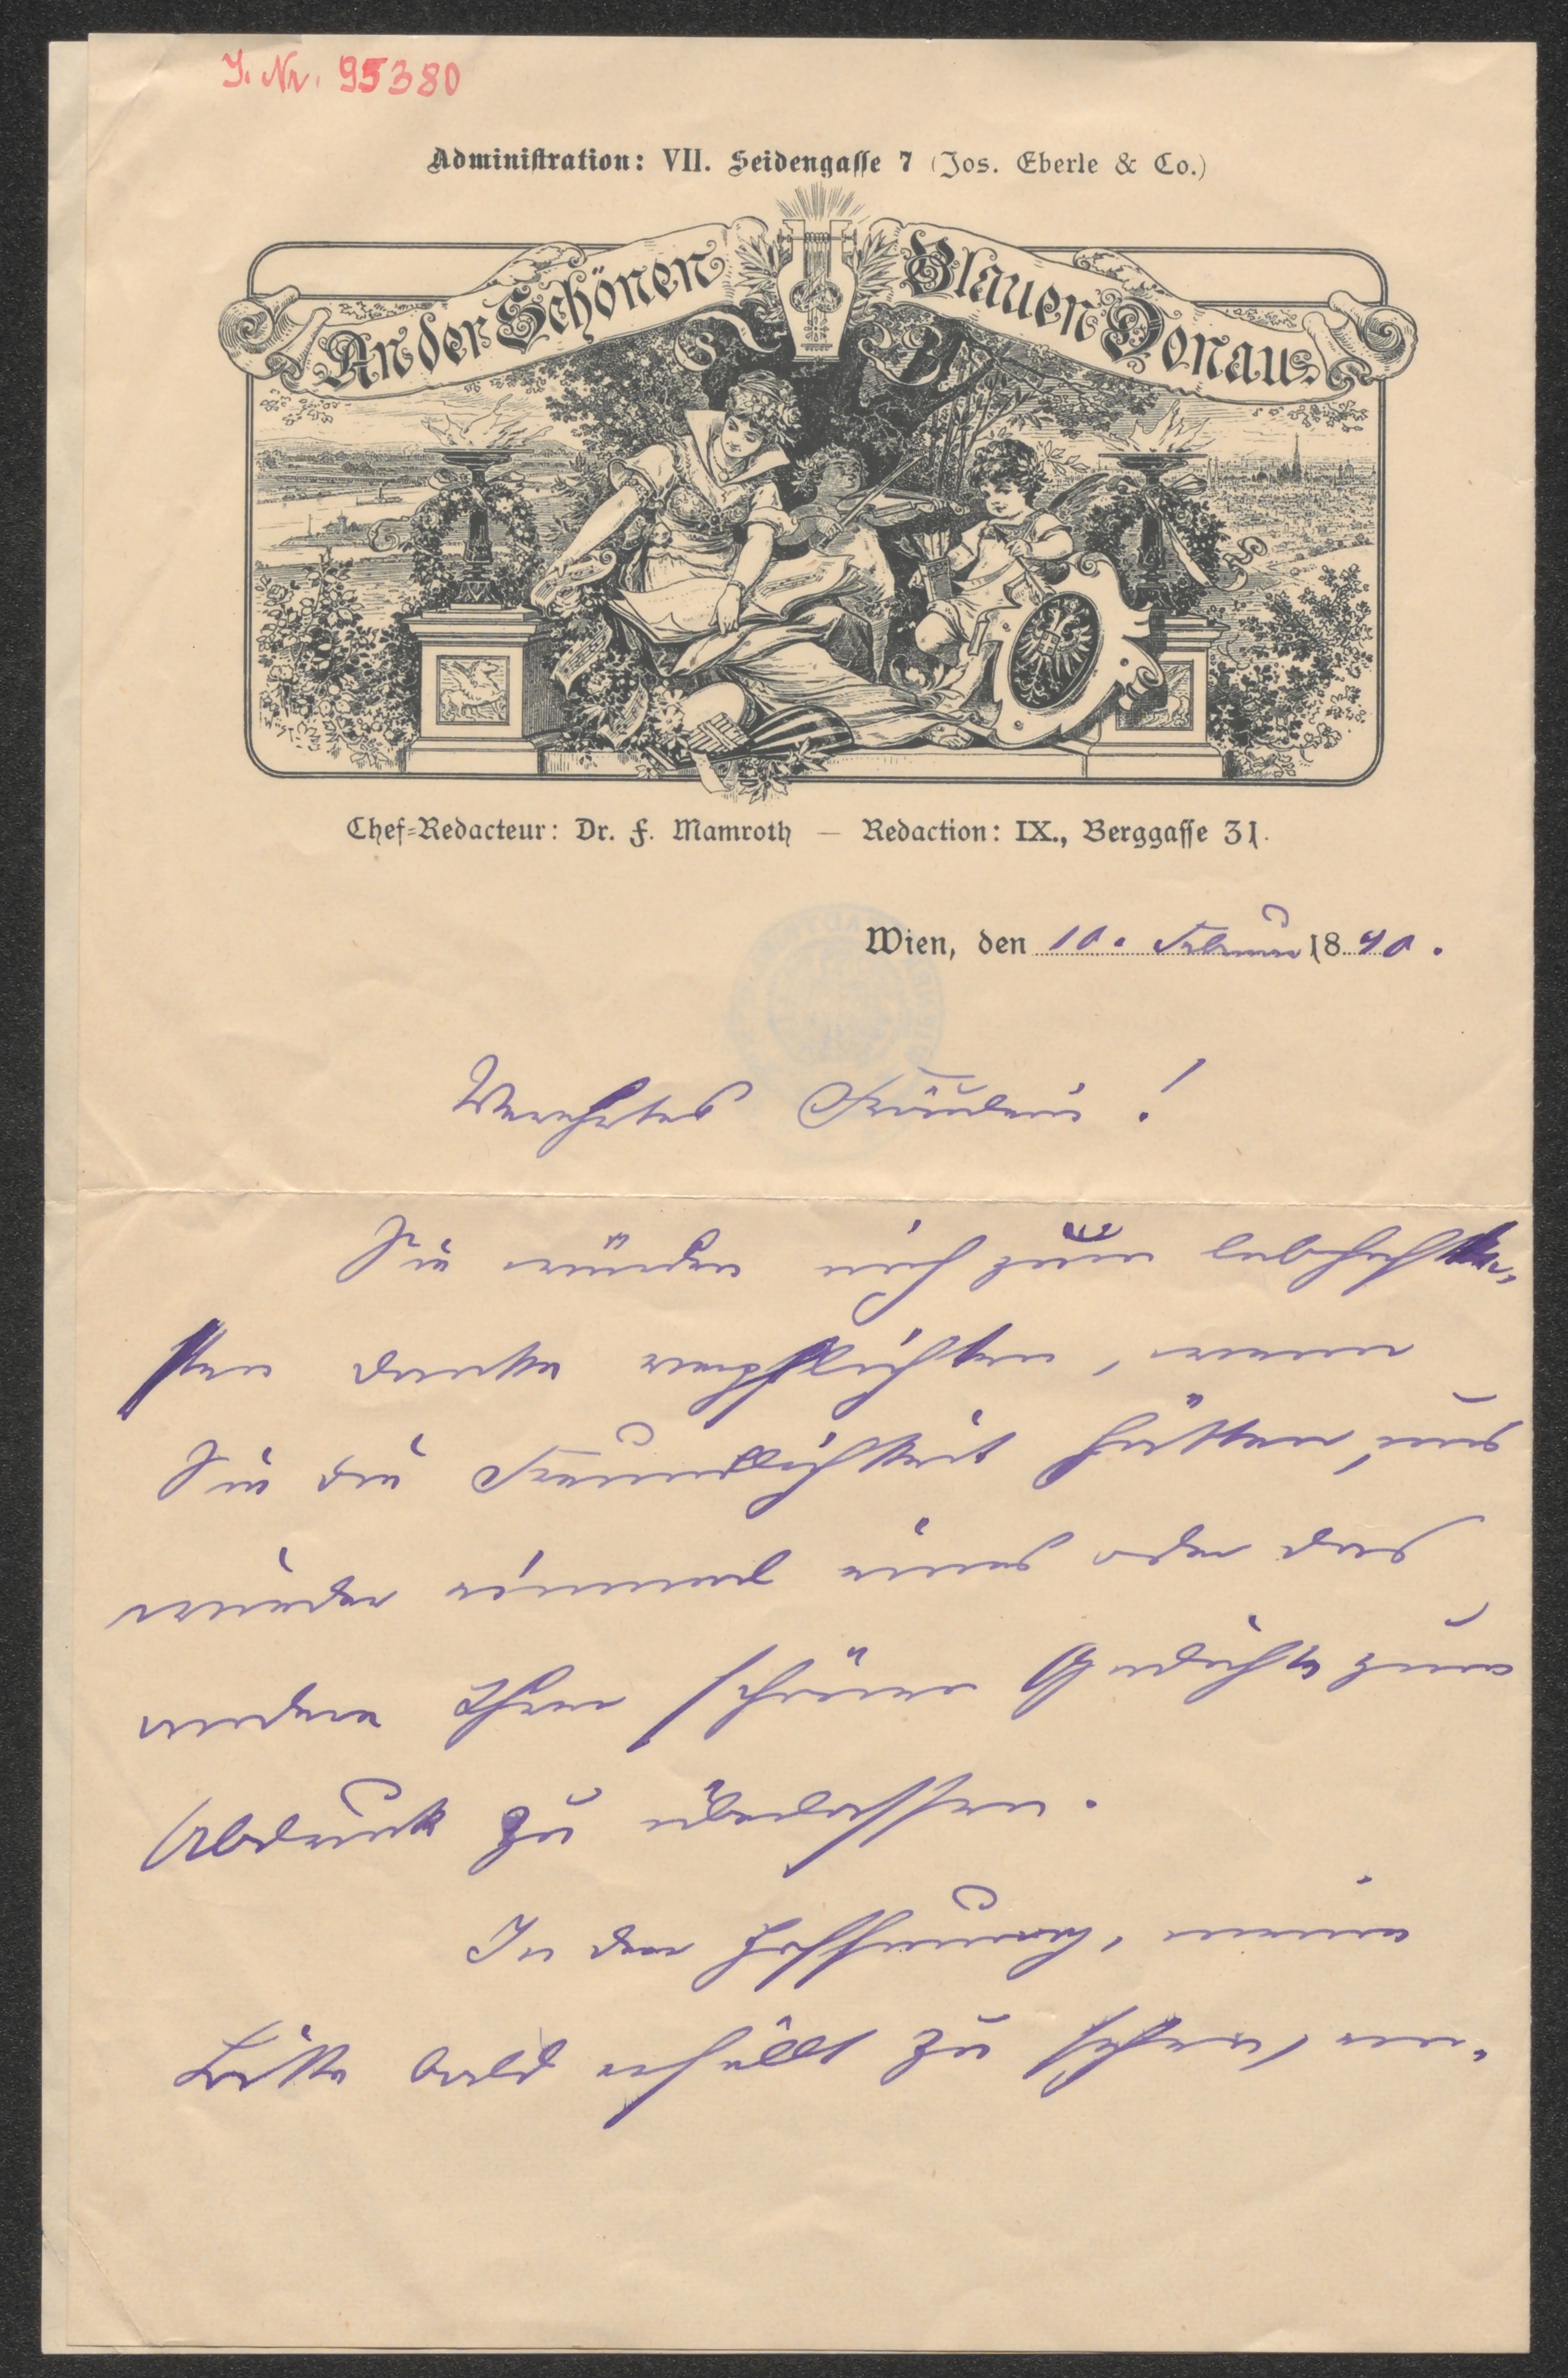 I. Nr. 95380
Administration: VII. Seidengasse 7 (Jos. Eberle & Co.)
An der Schönen Blauen Donau
Chef-Redacteur: Dr. F. Mamroth — Redaction: IX., Berggasse 31.
Wien, den 10. Februar 1890.
Verehrtes Fräulein!
Sie würden mich zum lebhafte-
sten Danke verpflichten, wenn
Sie die Freundlichkeit hätten, uns
wieder einmal eines oder das
andere Ihrer schönen Gedichte zum
Abdruck zu überlassen.
In der Hoffnung, meine
Bitte bald erfüllt zu sehen, em-